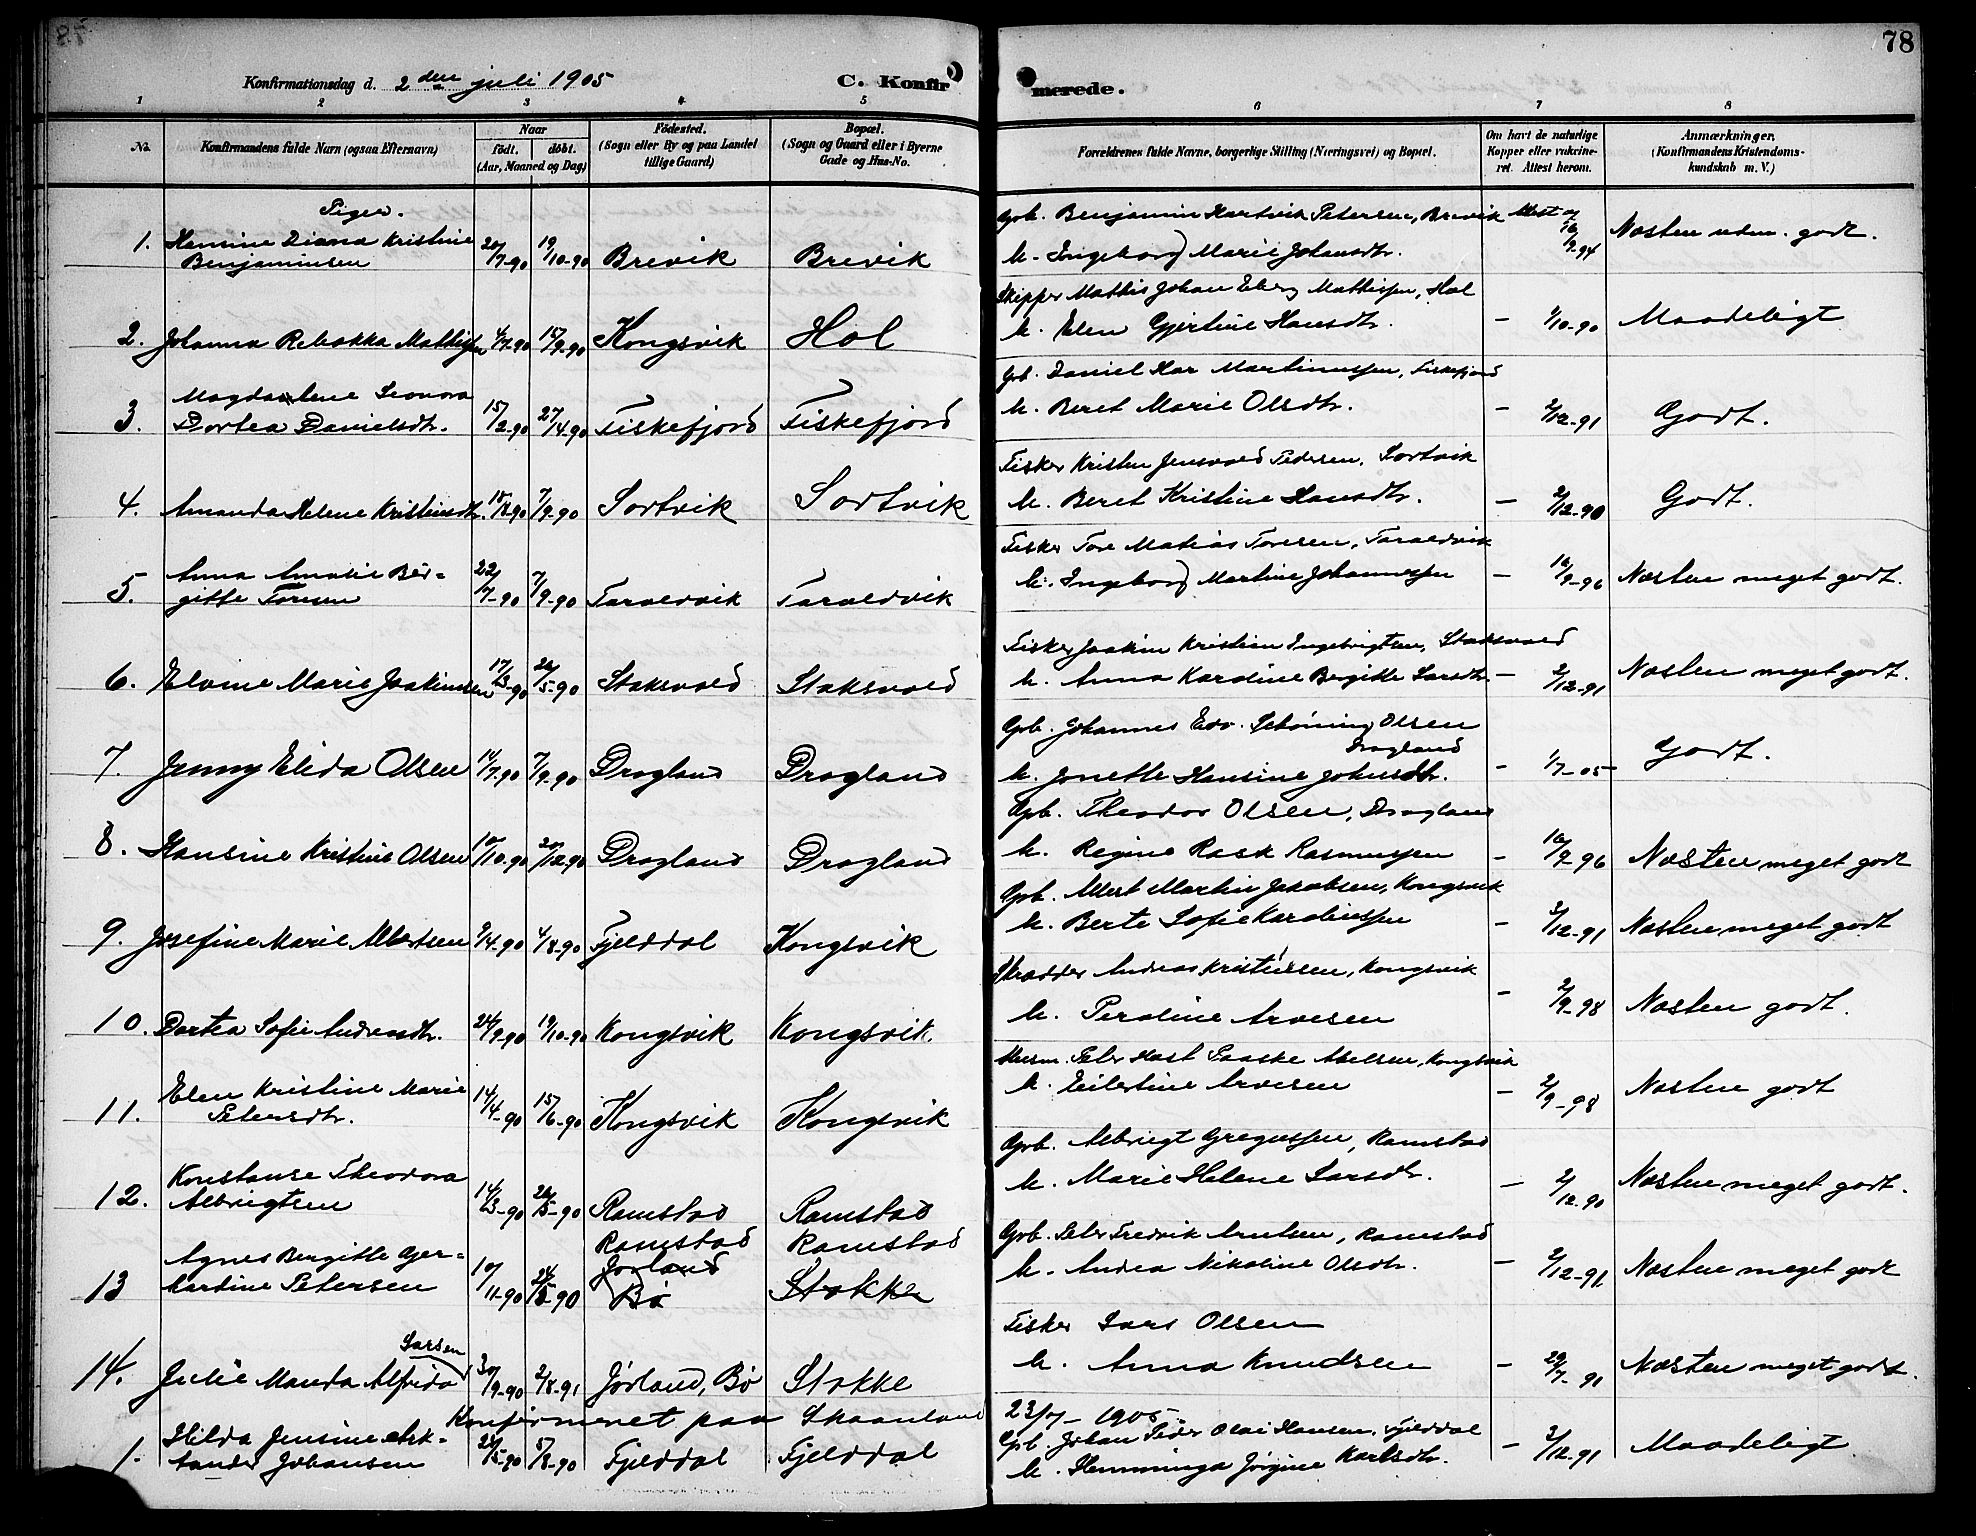 78
Konfirmationsdag d. 2den juli 1905
C. Konfirmerede.
1 2 3 4 5 6 7 8
No.
Konfirmandens fulde Navn (ogsaa Efternavn)
Naar
født. døbt.
(Aar, Maaned og Dag)
Fødested.
(Sogn eller By og paa Landet
tillige Gaard)
Bopæl.
(Sogn og Gaard eller i Byerne
Gade og Hus-No.
Forældrenes fulde Navne, borgerlige Stilling (Næringsvei) og Bopæl.
Om havt de naturlige
Kopper eller vakcine-
ret. Attest herom.
Anmærkninger.
(Konfirmandens Kristendoms-
kundskab m. V.)
Piger.
1. Hansine Diana Kristine
Benjaminsen 20/7-90 19/10-90 Brevik Brevik
Gbr. Benjamin Hartvik Petersen, Brevik
h. Ingeborg Marie Johansdtr. Attest af 16/9-94 Næsten uden. godt.
2. Johanna Rebakka Mathisen 4/7-90 15/9-90 Kongsvik Hol
Skipper Mathis Johan Eberg Mathissen, Hol
h. Elen Gjertine Hansdtr. - 1/10-90 Maadeligt
3. Magdalene Leonora
Dortea Danielsdtr. 15/2-90 27/4-90 Fiskefjord Fiskefjord
Gbr. Daniel Kar Martinussen, Fiskefjord
h. Beret Marie Olsdtr. - 2/12-91 Godt.
4. Amanda Helene Kristinsdtr. 18/8-90 7/9-90 Sortvik Sortvik
Fisker Kristen Jensvold Pedersen, Sortvik
h. Beret Kristine Hansdtr. - 2/12-90 Godt.
5. Anna Amalie Bir-
gitte Toresen 22/7-90 7/9-90 Taraldvik Taraldvik
Fisker Tore Matias Toresen, Taraldvik
h. Ingeborg Martine Johannessen - 16/9-96 Næsten meget godt.
6. Elvine Marie Joakimsen 17/3-90 26/5-90 Staksvold Staksvold
Fisker Joakim Kristian Ingebrigtsen, Staksvold
h. Anna Karoline Bergitte Larsdtr - 2/12-91 Næsten meget godt.
7. Jenny Elida Olsen 11/7-90 7/9-90 Dragland Dragland
Gbr. Johannes Edv. Schøning Olsen
Dragland
h. Jonette Hansine Johnsdtr. - 1/7-05 Godt.
8. Hansine Kristine Olsen 10/10-90 20/12-90 Dragland Dragland
Gbr. Theodor Olsen, Dragland
h. Regine Rask Rasmussen - 16/9-96 Næsten meget godt
9. Josefine Marie Albertsen 9/4-90 4/8-90 Fjelddal Kongsvik
Gbr. Albert Martin Jakobsen, Kongsvik
h. Berte Sofie Karolinssen - 2/12-91 Næsten meget godt
10. Dortea Sofie Andreasdtr. 24/9-90 19/10-90 Kongsvik Kongsvik.
Skrædder Andreas Kristensen, Kongsvik
h. Peroline Arvesen - 2/9-98 Næsten godt.
11. Elen Kristine Marie
Petersdtr. 14/4-90 15/6-90 Kongsvik Kongsvik
Husm. Peter Hast Paaske Abelsen, Kongsvik
h. Eilertine Arvesen - 2/9-98 Næsten godt
12. Konstanse Theodora
Albrigtsen 14/3-90 26/5-90 Ramstad Ramstad
Gbr. Albrigt Gregussen, Ramstad
h. Marie Helene Larsdtr. - 2/12-90 Næsten meget godt.
13 Agnes Bergitte Ger-
hartine Petersen 10/11-90 90 Ramstad Jorland Bø Ramstad Stokke
Gbr. Peter Fredrik Arntsen, Ramstad
h. Andrea Nikoline Olsdtr. - 2/12-91 Næsten meget godt
14. Julie Manda Alfrida Larsen 30/9-90 2/8-91 Jørland, Bø Stokke
Fisker Lars Olsen
h. Anna Knudsen - 29/7-91 Næsten meget godt.
Konfirmeret paa Skaanland 23/7-1905
1. Hilda Jensine Alek-
sander Johansen 24/5-90 5/8-90 Fjelddal Fjelddal
Gbr. Johan Peder Olai Hansen, Fjelddal
h. Hemminga Jørgine Karlsdtr. - 2/12-91 Maadeligt